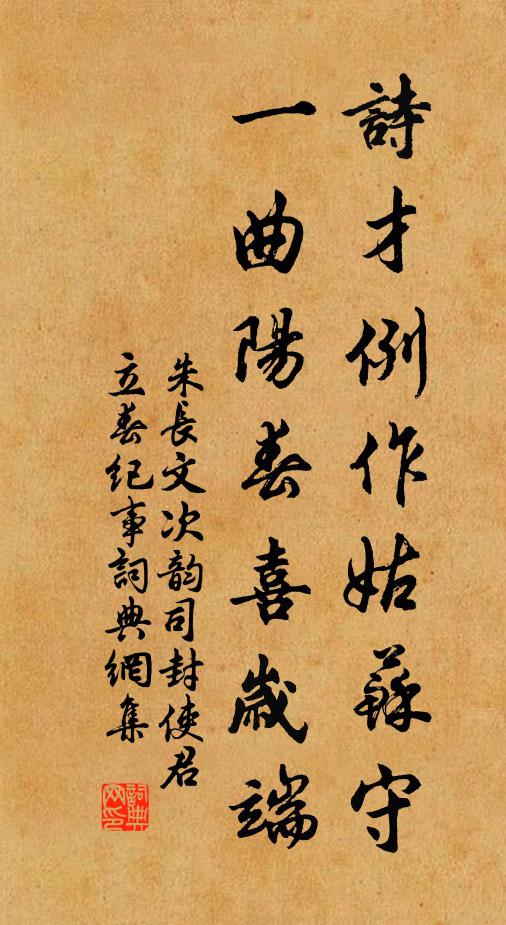 詩才例作姑蘇守
一曲陽春喜歲端
朱長文次韵司封使君
立春紀事詞典網集
詞典
网印